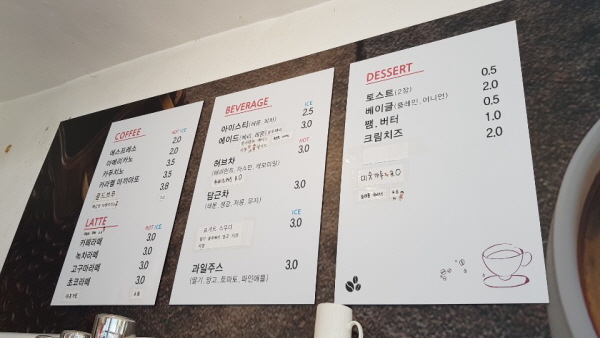 COFFEE
HOT ICE
에스프레소 2.0
아메리카노 2.0
카푸치노 3.5
카라멜 마끼아또 3.5
콜드브루 3.8
LATTE
HOT ICE
카페라떼 3.0
녹차라떼 3.0
고구마라떼 3.0
초코라떼 3.0
BEVERAGE
ICE
아이스티 2.5
에이드 3.0
HOT
허브차 3.0
(페퍼민트, 자스민, 캐모마일)
담근차 3.0
(레몬, 생강, 자몽, 유자)
ICE
3.0
과일주스 3.0
(딸기, 망고, 토마토, 파인애플)
DESSERT
토스트(2장) 0.5
베이글(플레인, 어니언) 2.0
쨈, 버터 0.5
크림치즈 1.0
2.0